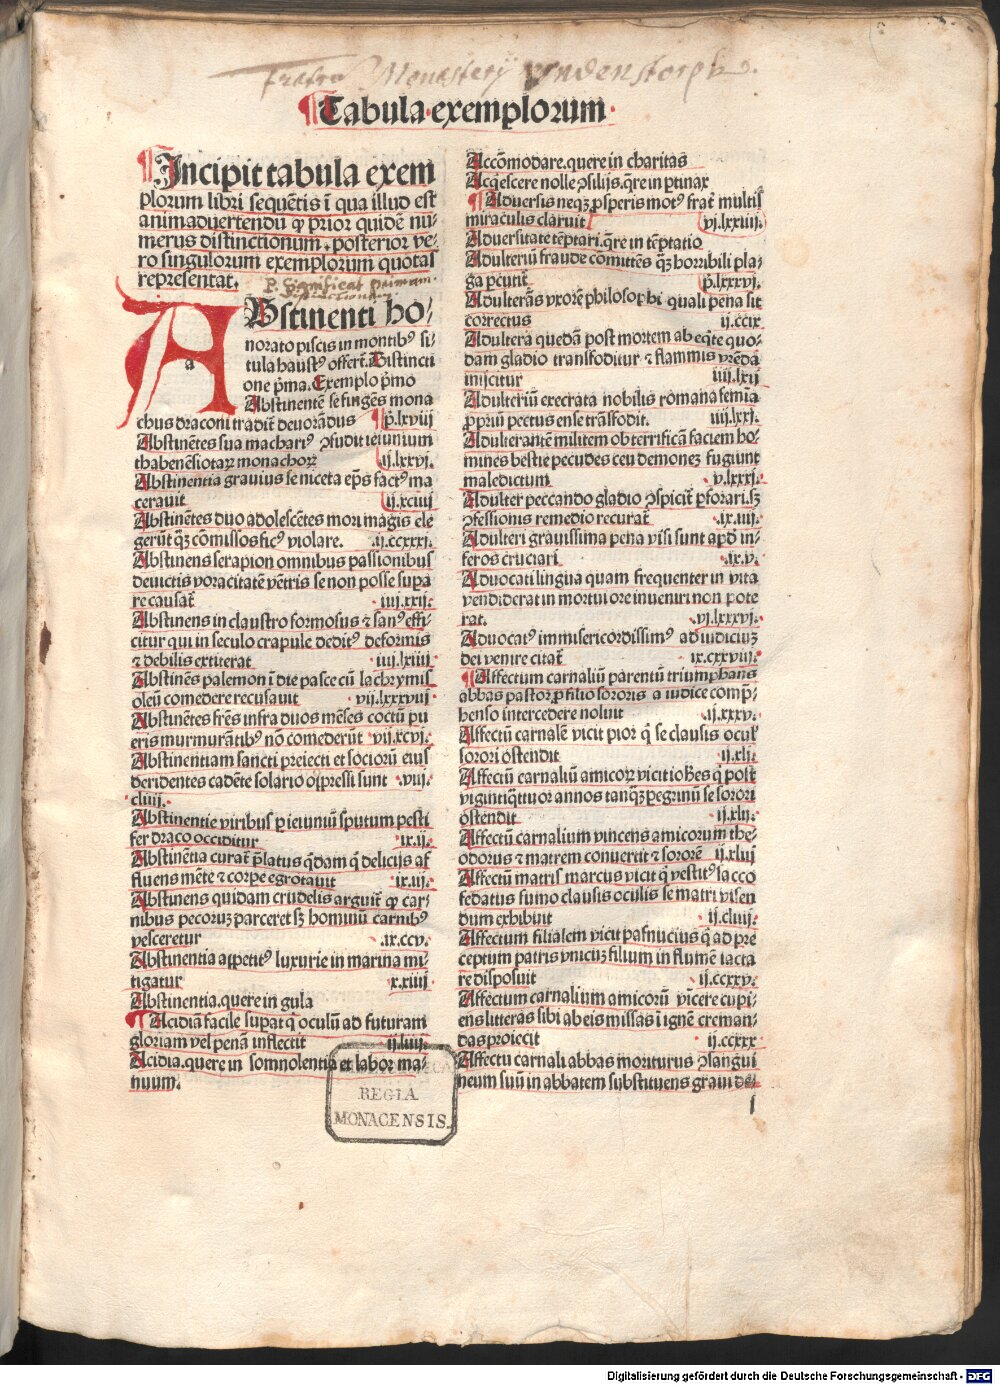 Monasterij
Tabula exemplorum
Incipit tabula exem
plorum libri sequẽtis ĩ qua illud est
animaduertendũ ꝙ prior quidẽ nu⸗
merus distinctionum, posterior ve⸗
ro singulorum exemplorum quotas
representat.
P. significat primam
distinctionem
A
a
Bstinenti ho⸗
norato piscis in montibꝰ si⸗
tula haustꝰ offert̃. Distincti
one p̃ma. Exemplo p̃mo
Abstinentẽ se fingẽs mona
chus draconi tradit̃ deuorãdus p̃.lxviij
Abstinẽtes sua macharĩꝰ ꝯfudit ieiunium
thabenẽsiotaꝝ monachoꝝ ij.lxxvj.
Abstinentia grauius se niceta ep̃s factꝰ ma
cerauit ij.xciiij
Abstinẽtes duo adolescẽtes mori magis ele
gerũt q̃ꝫ cõmissos ficꝰ violare. .ij.ccxxxj.
Abstinens serapion omnibus passionibus
deuictis voracitatẽ vẽtris se non posse supa
re causat̃ iiij.xxij.
Abstinens in claustro formosus ⁊ sanꝰ effi⸗
citur qui in seculo crapule deditꝰ deformis
⁊ debilis extiterat iiij.lxiiij
Abstinẽs palemon ĩ die pasce cũ lachrymis
oleũ comedere recusauit vij.lxxxviij
Abstinẽtes fr̃es infra duos mẽses coctũ pu
eris murmurãtibꝰ nõ comederũt vij.xcvj.
Abstinentiam sancti preiecti et sociorũ eius
deridentes cadẽte solario opp̃ressi sunt .viij.
cliiij.
Abstinentie viribus ꝑ ieiuniũ sputum pesti
fer draco occiditur ix.ij.
Abstinẽtia curat̃ p̃latus q̃dam q̃ delicijs af
fluens mẽte ⁊ corꝑe egrotauit ix.iij.
Abstinens quidam crudelis arguit̃ ꝙ car⸗
nibus pecoruꝫ parceret sꝫ hominũ carnibꝰ
vesceretur .ix.ccv.
Abstinentia appetitꝰ luxurie in marina mi⸗
tigatur x.xiiij
Abstinentia.quere in gula
Acidiã facile supat q̃ oculũ ad futuram
gloriam vel penã inflectit ij.liiij.
Acidia.quere in somnolentia et labor ma⸗
nuum.
Accõmodare.quere in charitas
Acq̃escere nolle ꝯsilijs.q̃re in ꝑtinax
Aduersis neqꝫ ꝓsperis motꝰ frat̃ multis
miraculis claruit vj.lxxiiij.
Aduersitate tẽptari.q̃re in tẽptatio
Adulteriũ fraude cõmittẽs q̃ꝫ horribili pla⸗
ga ꝑcutit̃ p̃.lxxxvj.
Adulterãs vxorẽ philosophi quali pena sit
correctus ij.ccix
Adultera quedã post mortem ab eq̃te quo⸗
dam gladio transfoditur ⁊ flammis vrẽda
inijcitur iiij.lxij
Adulteriũ execrata nobilis romana femĩa
ꝓpriũ pectus ense trãsfodit. iiij.lxxj.
Adulterantẽ militem ob terrificã faciem ho⸗
mines bestie pecudes ceu demoneꝫ fugiunt
maledictum v.lxxxj.
Adulter peccando gladio ꝯspicit̃ ꝑforari.sꝫ
ꝯfessionis remedio recurat̃ .ix.iiij.
Adulteri grauissima pena visi sunt apd̃ in⸗
feros cruciari .ix.v.
Aduocati lingua quam frequenter in vita
vendiderat in mortui ore inueniri non pote
rat. .vj.lxxxvj.
Aduocatꝰ immisericordissimꝰ ad iudiciuꝫ
dei venire citat̃ ix.cxxviij.
Affectum carnaliũ parentũ triumphans
abbas pastor ꝓ filio sororis a iudice comp̃⸗
henso intercedere noluit .ij.xxxv.
Affectũ carnalẽ vicit pior q̃ se clausis oculꝰ
sorori ostendit ij.xli.
Affectũ carnaliũ amicoꝝ vicit ioh̃es q̃ post
vigintiq̃ttuor annos tanq̃ꝫ ꝑegrinũ se sorori
ostendit ij.xlij.
Affectũ carnalium vincens amicorum the⸗
odorus ⁊ matrem conuertit ⁊ sororẽ ij.xliij
Affectũ matris marcus vicit q̃ vestitꝰ sacco
fedatus fumo clausis oculis se matri viden
dum exhibuit ij.cliij.
Affectum filialem vicit pafnucius q̃ ad pre
ceptum patris vnicuꝫ filium in flumẽ iacta
re disposuit ij.ccxxv.
Affectum carnalium amicorũ vĩcere cupi⸗
ens litteras sibi ab eis missas ĩ ignẽ creman⸗
das proiecit ij.ccxxx
Affectu carnali abbas moriturus ꝯsangui
neum suũ in abbatem substituens graui de⸗
1
BIBLIOTHECA
REGIA
MONACENSIS.
Digitalisierung gefördert durch die Deutsche Forschungsgemeinschaft - DFG